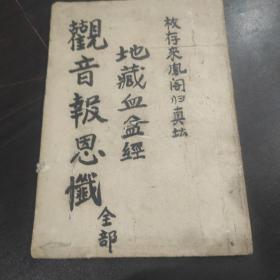 放存來鳳阁归真坛
地藏血盆經
觀音報恩懺全部